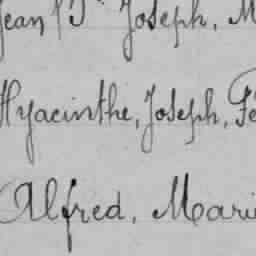 Jean Bte Joseph, M
Hyacinthe, Joseph, Fé
Alfred, Mari